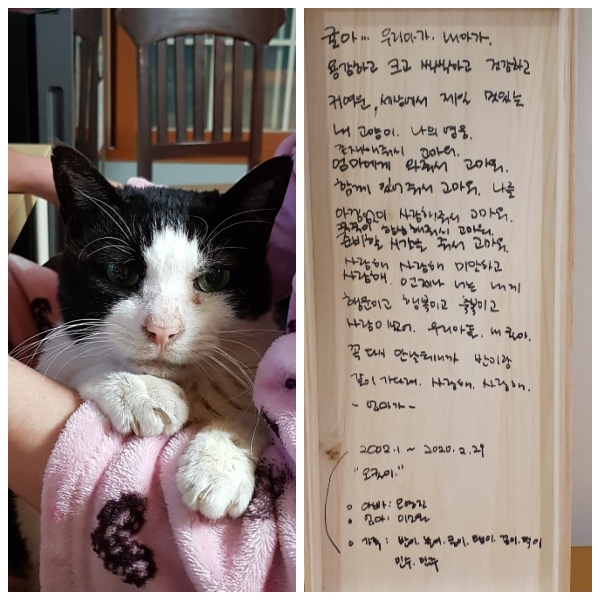 우리아가. 내아가.
용감하고 크고 씩씩하고 건강하고
귀여운, 세상에서 제일 멋있는
내 고양이. 나의 영웅.
존재해줘서 고마워.
엄마에게 와줘서 고마워.
함께 있어줘서 고마워. 나를
아낌없이 사랑해줘서 고마워.
항상 고마워.
시간을 줘서 고마워.
사랑해 사랑해 미안하고
사랑해. 언제나 너는 내게
행운이고 행복이고 축복이고
사랑이었어. 우리아들.
꼭 다시 만날테니까
같이 기다려. 사랑해. 사랑해.
- 엄마가 -
2002.1 ~ 2020.2.29
아빠:
엄마:
가족: